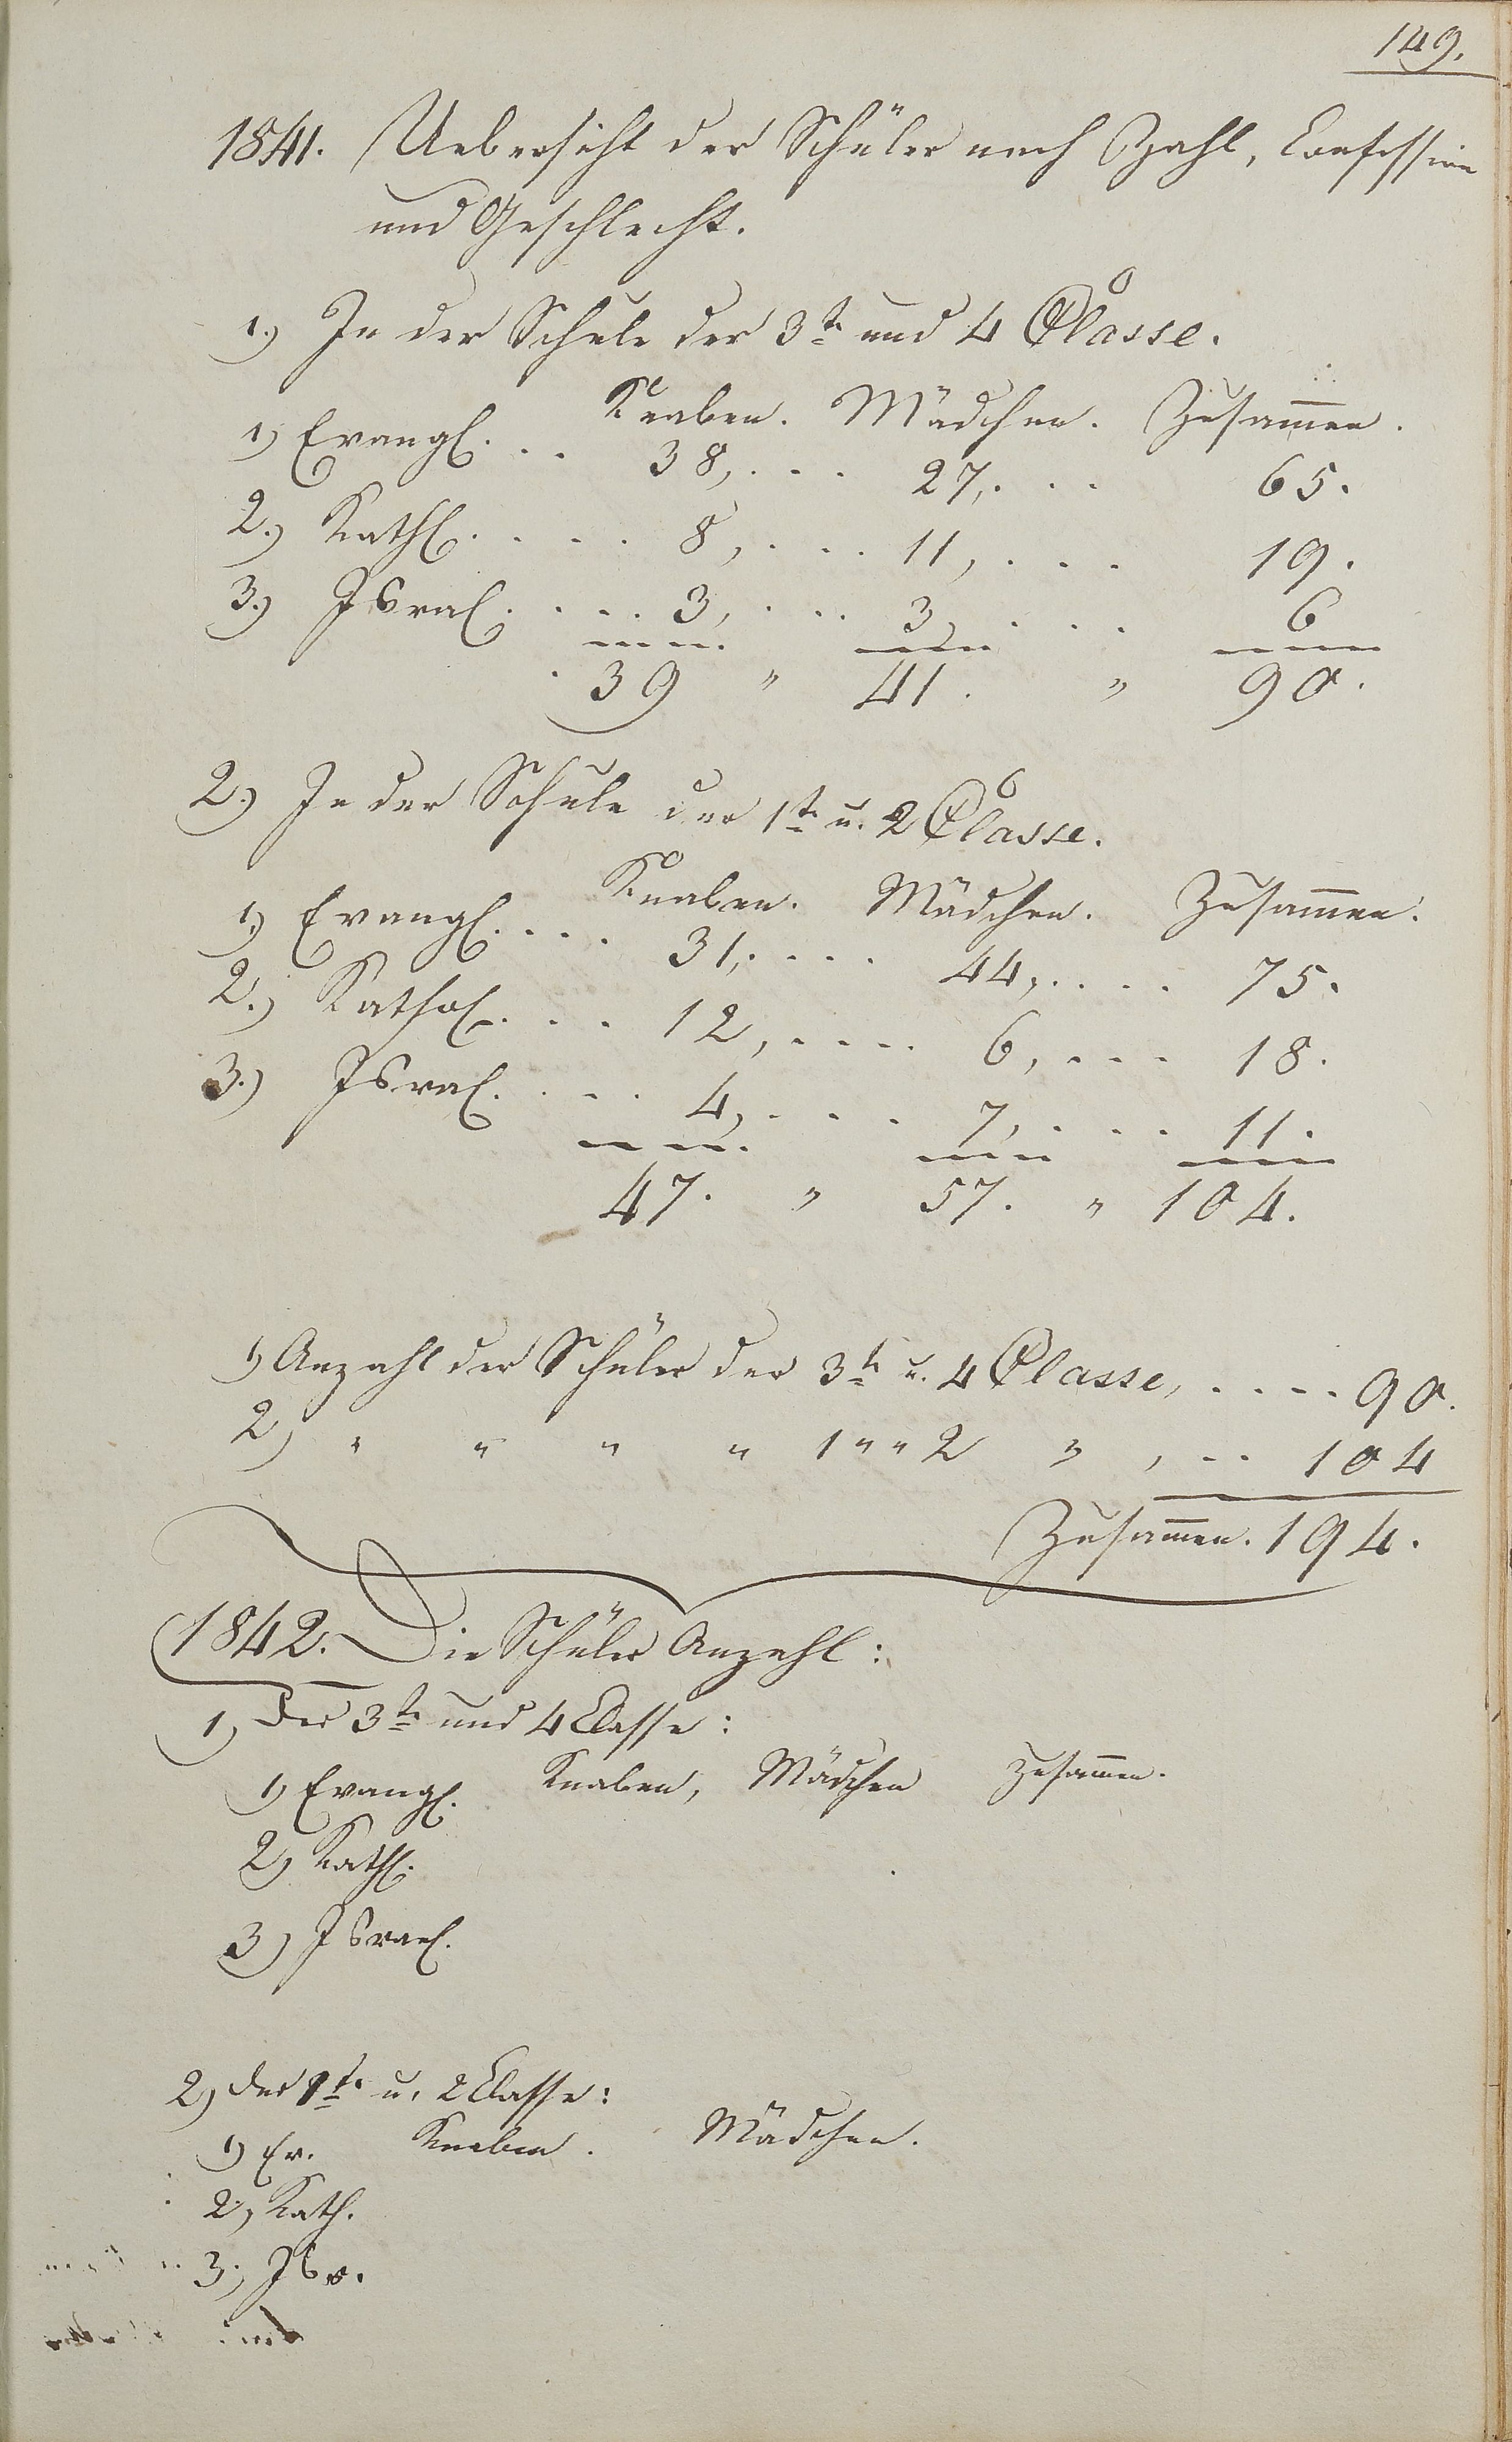 149.
1841. Uebersicht der Schüler nach Zahl, Confession
und Geschlecht.
1.) In der Schule der 3te und 4 Classe.
Knaben. Mädchen. Zusam̅en.
1) Evangl. . . 38, . . . 27, . . . 65.
2.) Kathl. . . . . 8, . . . . 11, . . . . 19.
3.) Israel. . . . . 3, . . . . 3, . . . . 6
39 " 41. " 90.
2.) In der Schule der 1te u. 2 Classe.
Knaben. Mädchen. Zusam̅en.
1) Evangl. . . . 31, . . . . 44, . . . . 75.
2.) Kathol. . . . 12, . . . . 6, . . . 18.
3.) Israel. . . . . 4, . . . . 7, . . . . 11.
47. " 57. " 104.
1) Anzahl der Schüler der 3te u. 4 Classe, . . . . 90.
2) " " " " 1 " " 2 " , . . 104
Zusam̅en. 194.
1842. Die Schüler Anzahl:
1) Der 3te und 4 Classe:
1) Evangl. Knaben, Mädchen zusam̅en.
2) Kathl.
3) Israel.
2) der 1te u. 2 Classe:
1) Ev. Knaben. Mädchen.
2) Kath.
3) Isr.